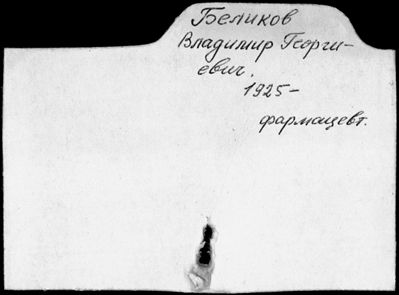 Беликов
Владимир Георги-
евич.
1925-
фармацевт.